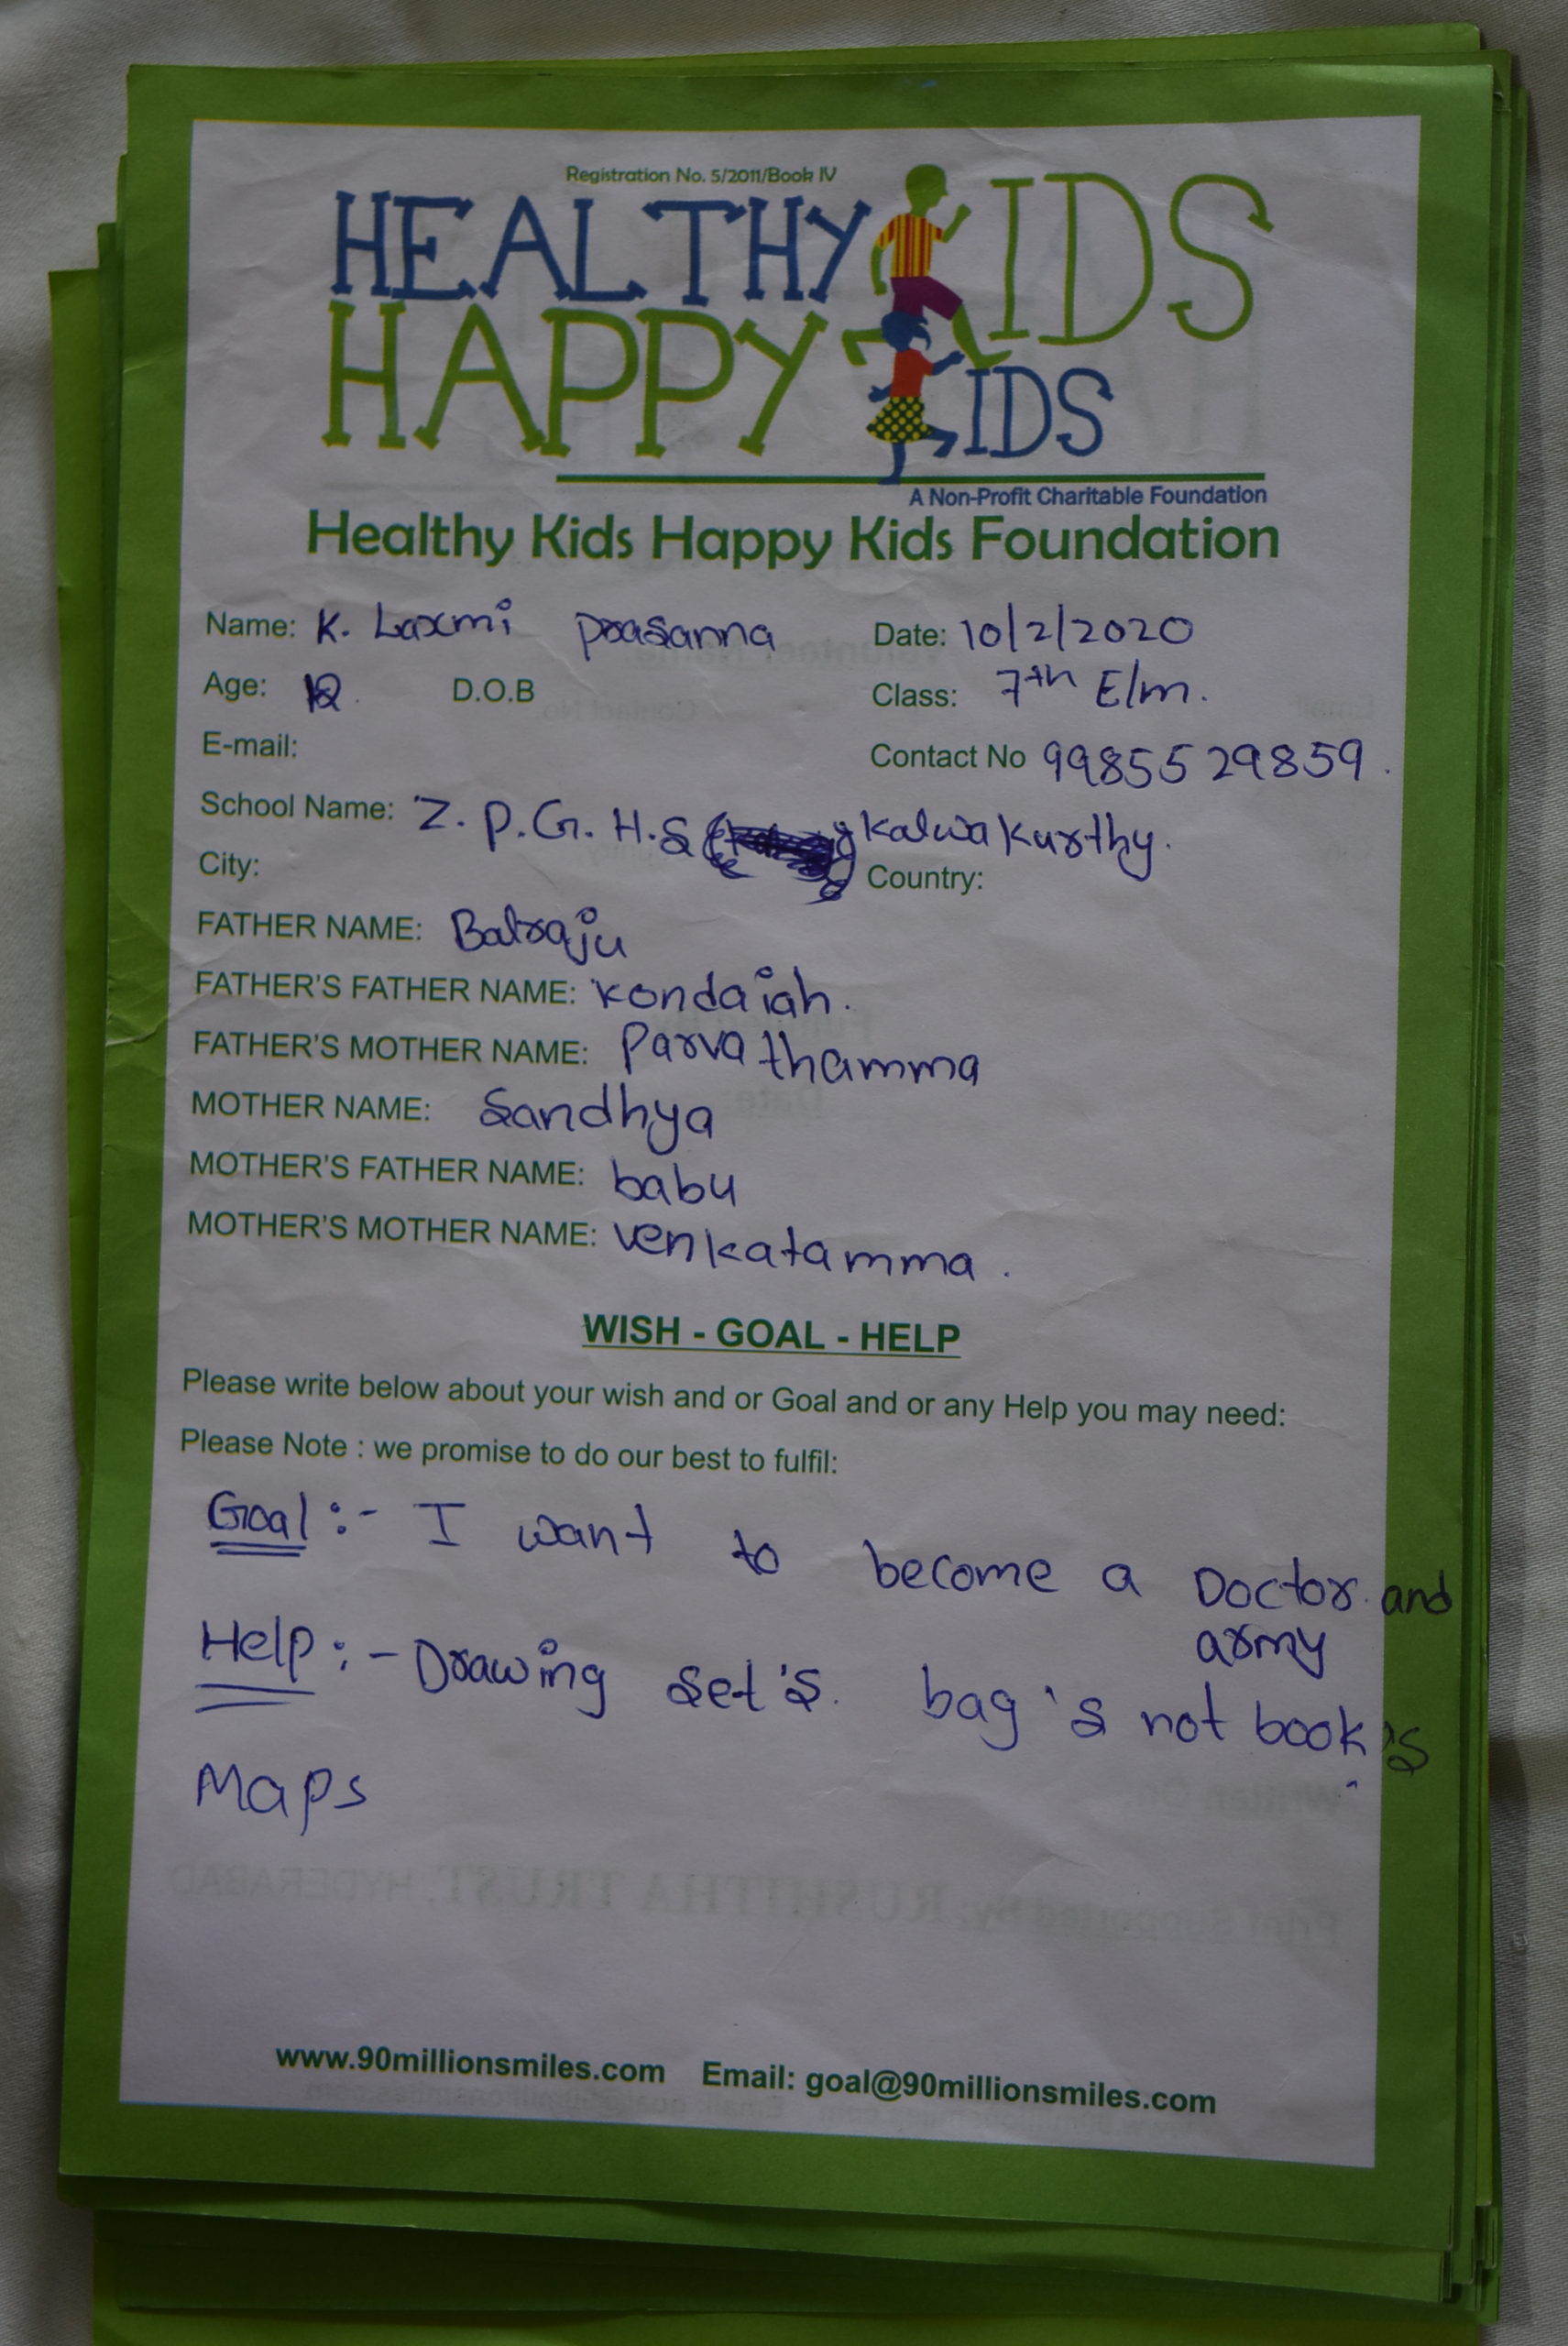 Registration No. 5/2011/Book IV
HEALTHY KIDS
HAPPY KIDS
A Non-Profit Charitable Foundation
Healthy Kids Happy Kids Foundation
Name: K. Laxmi prasanna Date: 10/2/2020
Age: 12. D.O.B Class: 7th E/m.
E-mail: Contact No 9985529859.
School Name: Z.P.G.H.S kalwakurthy.
City: Country:
FATHER NAME: Balraju
FATHER'S FATHER NAME: kondaiah.
FATHER'S MOTHER NAME: Parvathamma
MOTHER NAME: Sandhya
MOTHER'S FATHER NAME: babu
MOTHER'S MOTHER NAME: venkatamma.
WISH - GOAL - HELP
Please write below about your wish and or Goal and or any Help you may need:
Please Note : we promise to do our best to fulfil:
Goal :- I want to become a Doctor and
army
Help :- Drawing set's. bag's not book's
Maps
www.90millionsmiles.com Email: goal@90millionsmiles.com